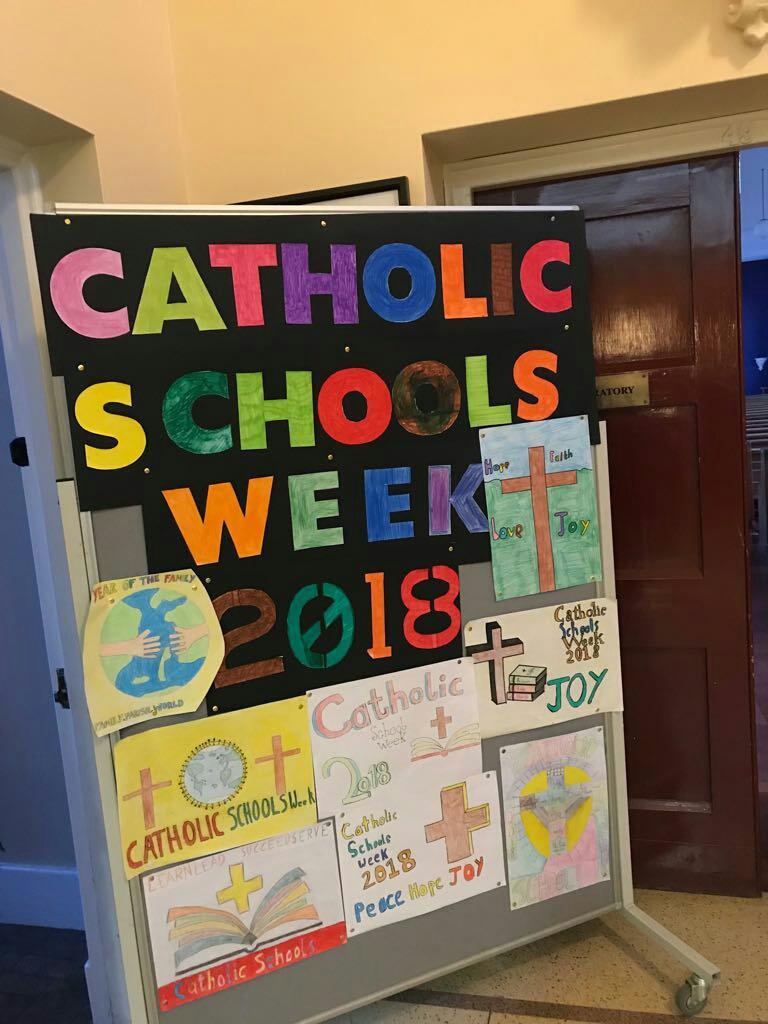 CATHOLIC
SCHOOLS
WEEK
2018
RATORY
Hope Faith
Love Joy
YEAR OF THE FAMILY
FAMILY.PARISH.WORLD
Catholic
Schools
Week
2018
JOY
Catholic
Schools
Week
2018
CATHOLIC SCHOOLS Week
Catholic
Schools
week
2018
Peace Hope JOY
LEARN LEAD SUCCEED SERVE
Catholic Schools